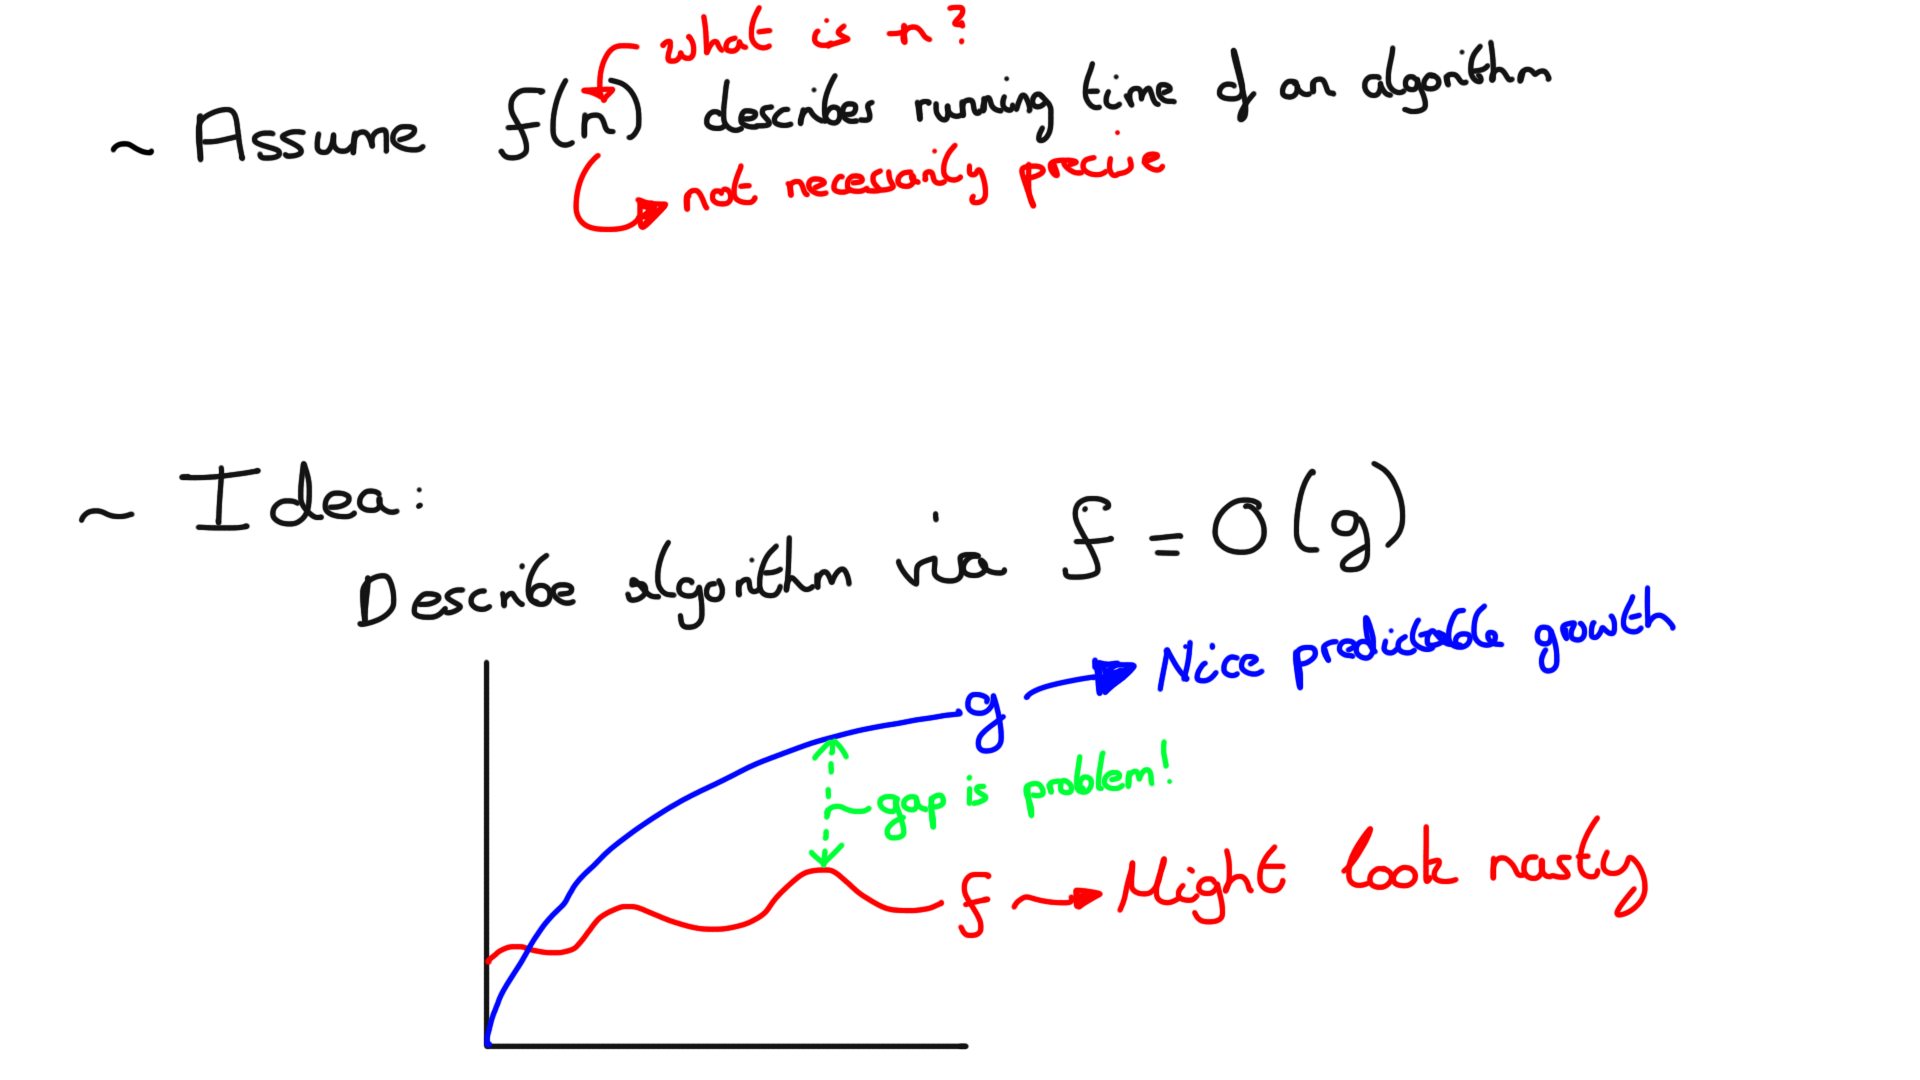 what is n?
~ Assume f(n) describes running time of an algorithm
not necessarily precise
~ Idea:
Describe algorithm via f = O(g)
Nice predictable growth
g
gap is problem!
f
Might look nasty